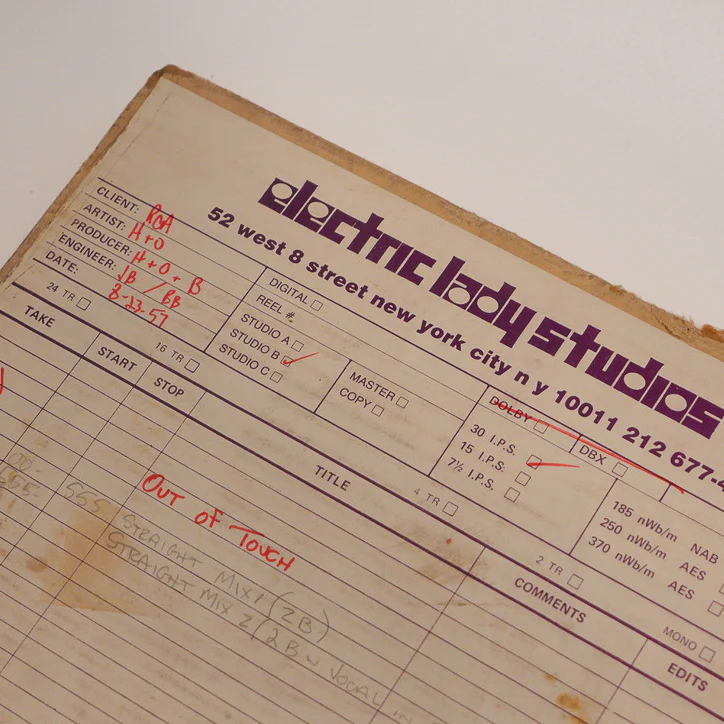 electric lady studios
52 west 8 street new york city n y 10011 212 677-4
CLIENT: RCA
ARTIST: H+O
PRODUCER: H+O+B
ENGINEER: JB / BB
DATE: 8-23-57
DIGITAL
REEL #
STUDIO A
STUDIO B
STUDIO C
MASTER
COPY
DOLBY
DBX
30 I.P.S.
15 I.P.S.
7½ I.P.S.
185 nWb/m NAB
250 nWb/m AES
370 nWb/m AES
24 TR
16 TR
4 TR
2 TR
MONO
TAKE START STOP TITLE COMMENTS EDITS
OUT OF TOUCH
555 STRAIGHT MIX 1 (2B)
STRAIGHT MIX 2 (2B w VOCAL IN